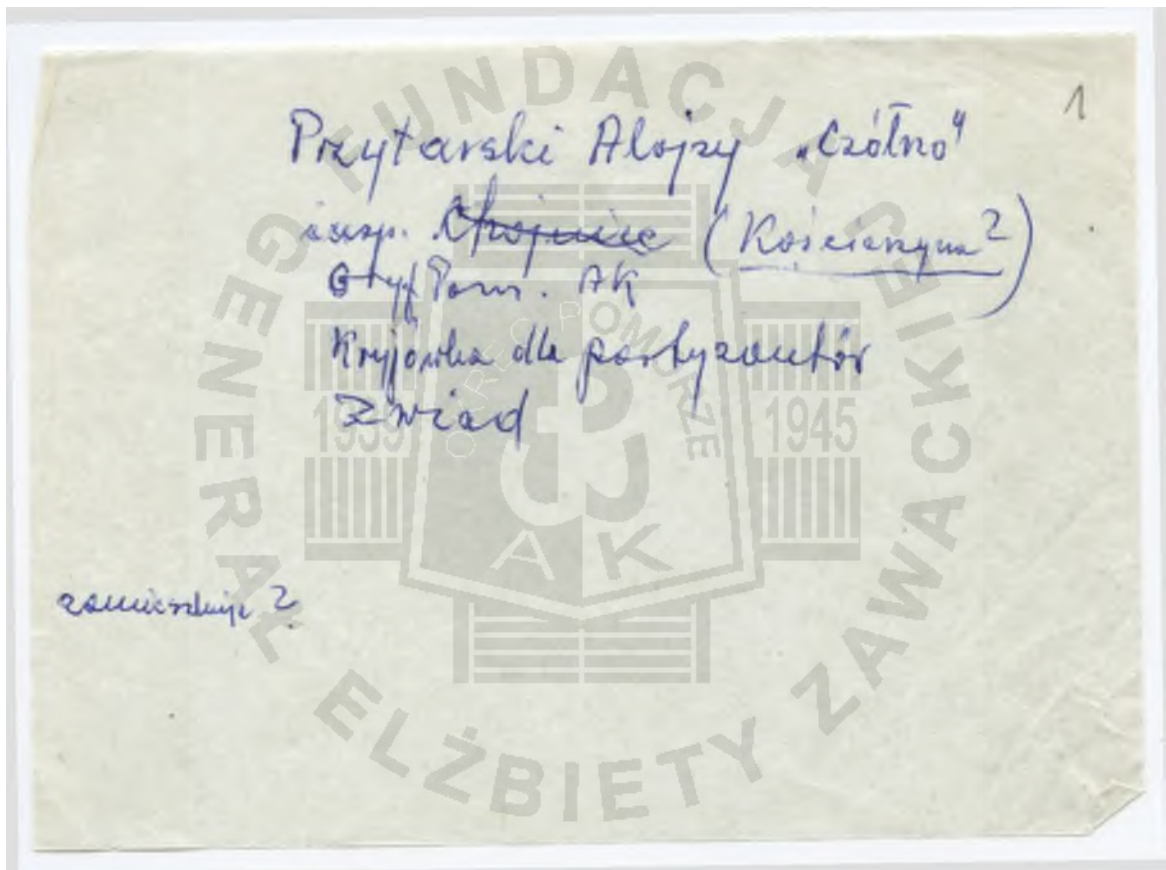 1
Przytarski Alojzy „Czółno”
insp. Chojnice (Kościerzyna?)
Gryf Pom. AK
Kryjówka dla partyzantów
Zwiad
zamieszkuje ?
FUNDACJA GENERAŁ ELŻBIETY ZAWACKIEJ
OKRĘG POMORZE
1939 1945
AK